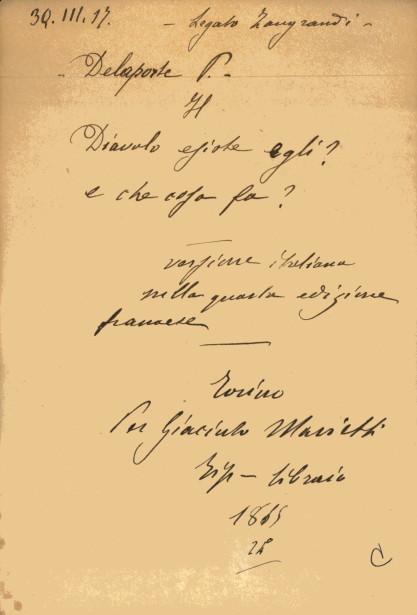 30. III. 17. - Legato Zangrandi -
- Delaporte P. -
Il
Diavolo esiste egli?
e che cosa fa?
versione italiana
sulla quarta edizione
francese
Torino
Per Giacinto Marietti
Tip - libraio
1865
C